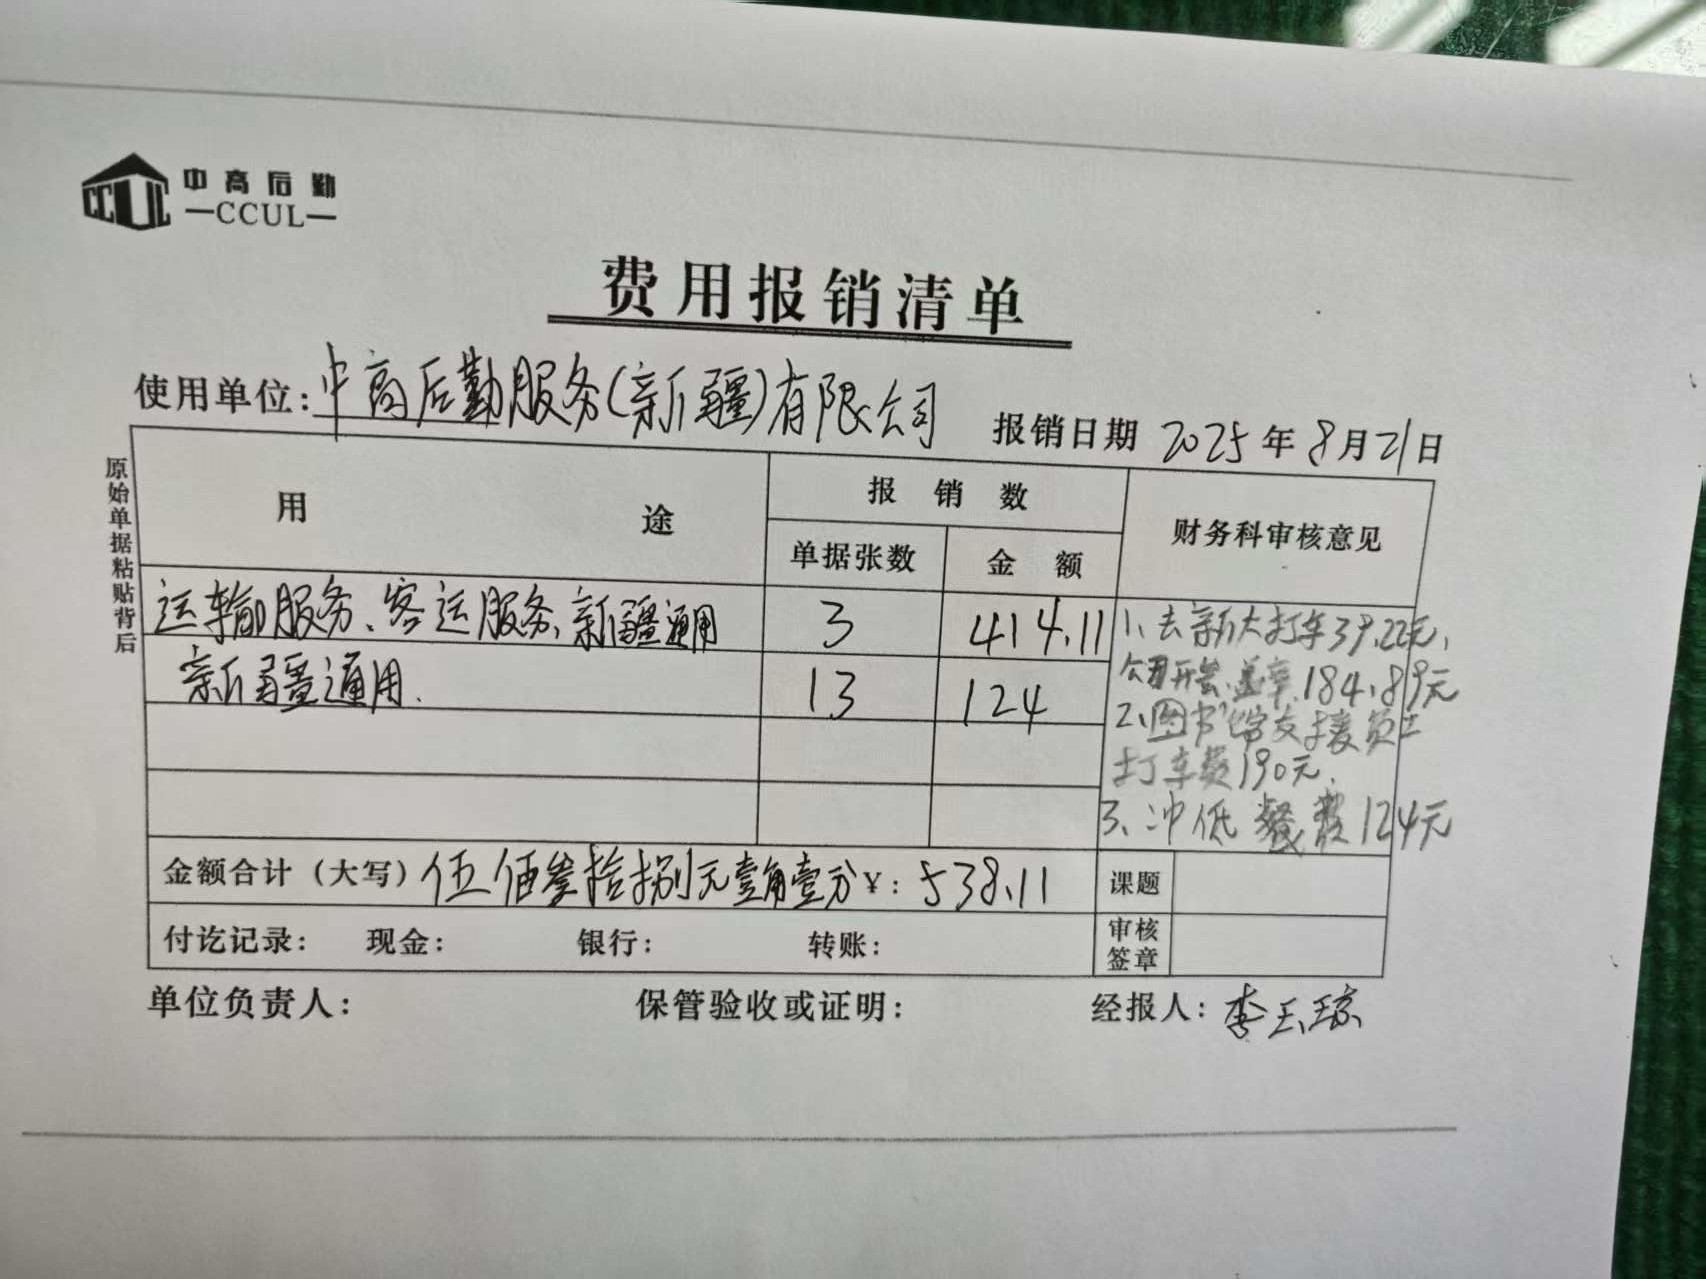 中高后勤
CCUL
—CCUL—
费用报销清单
使用单位:中高后勤服务(新疆)有限公司 报销日期 2025年8月21日
原始单据粘贴背后
用途 报销数 财务科审核意见
单据张数 金额
运输服务、客运服务、新疆通用 3 414.11
新疆通用. 13 124
1、去新大打车39.22元,
公司开会、盖章.184.89元
2、图书馆支援员工
打车费190元.
3、冲低餐费124元
金额合计(大写)伍佰叁拾捌元壹角壹分¥:538.11 课题
付讫记录: 现金: 银行: 转账: 审核签章
单位负责人: 保管验收或证明: 经报人:李玉琼